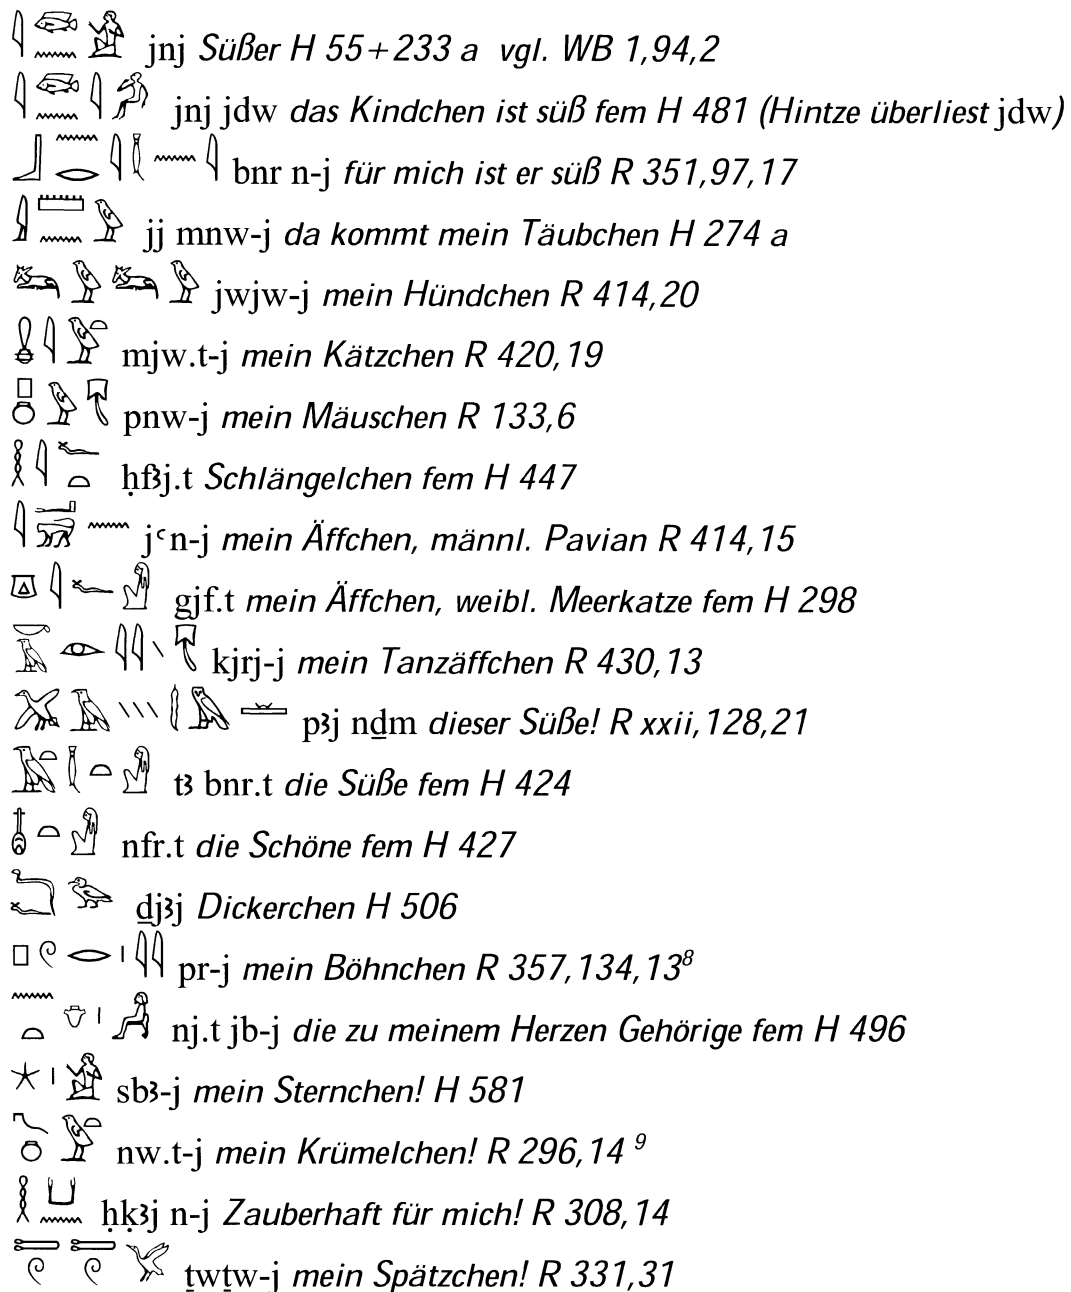 jnj Süßer H 55+233 a vgl. WB 1,94,2
jnj jdw das Kindchen ist süß fem H 481 (Hintze überliest jdw)
bnr n-j für mich ist er süß R 351,97,17
jj mnw-j da kommt mein Täubchen H 274 a
jwjw-j mein Hündchen R 414,20
mjw.t-j mein Kätzchen R 420,19
pnw-j mein Mäuschen R 133,6
ḥfꜣj.t Schlängelchen fem H 447
jꜥn-j mein Äffchen, männl. Pavian R 414,15
gjf.t mein Äffchen, weibl. Meerkatze fem H 298
kjrj-j mein Tanzäffchen R 430,13
pꜣj nḏm dieser Süße! R xxii,128,21
tꜣ bnr.t die Süße fem H 424
nfr.t die Schöne fem H 427
ḏjꜣj Dickerchen H 506
pr-j mein Böhnchen R 357,134,13⁸
nj.t jb-j die zu meinem Herzen Gehörige fem H 496
sbꜣ-j mein Sternchen! H 581
nw.t-j mein Krümelchen! R 296,14 ⁹
ḥḳꜣj n-j Zauberhaft für mich! R 308,14
ṯwṯw-j mein Spätzchen! R 331,31